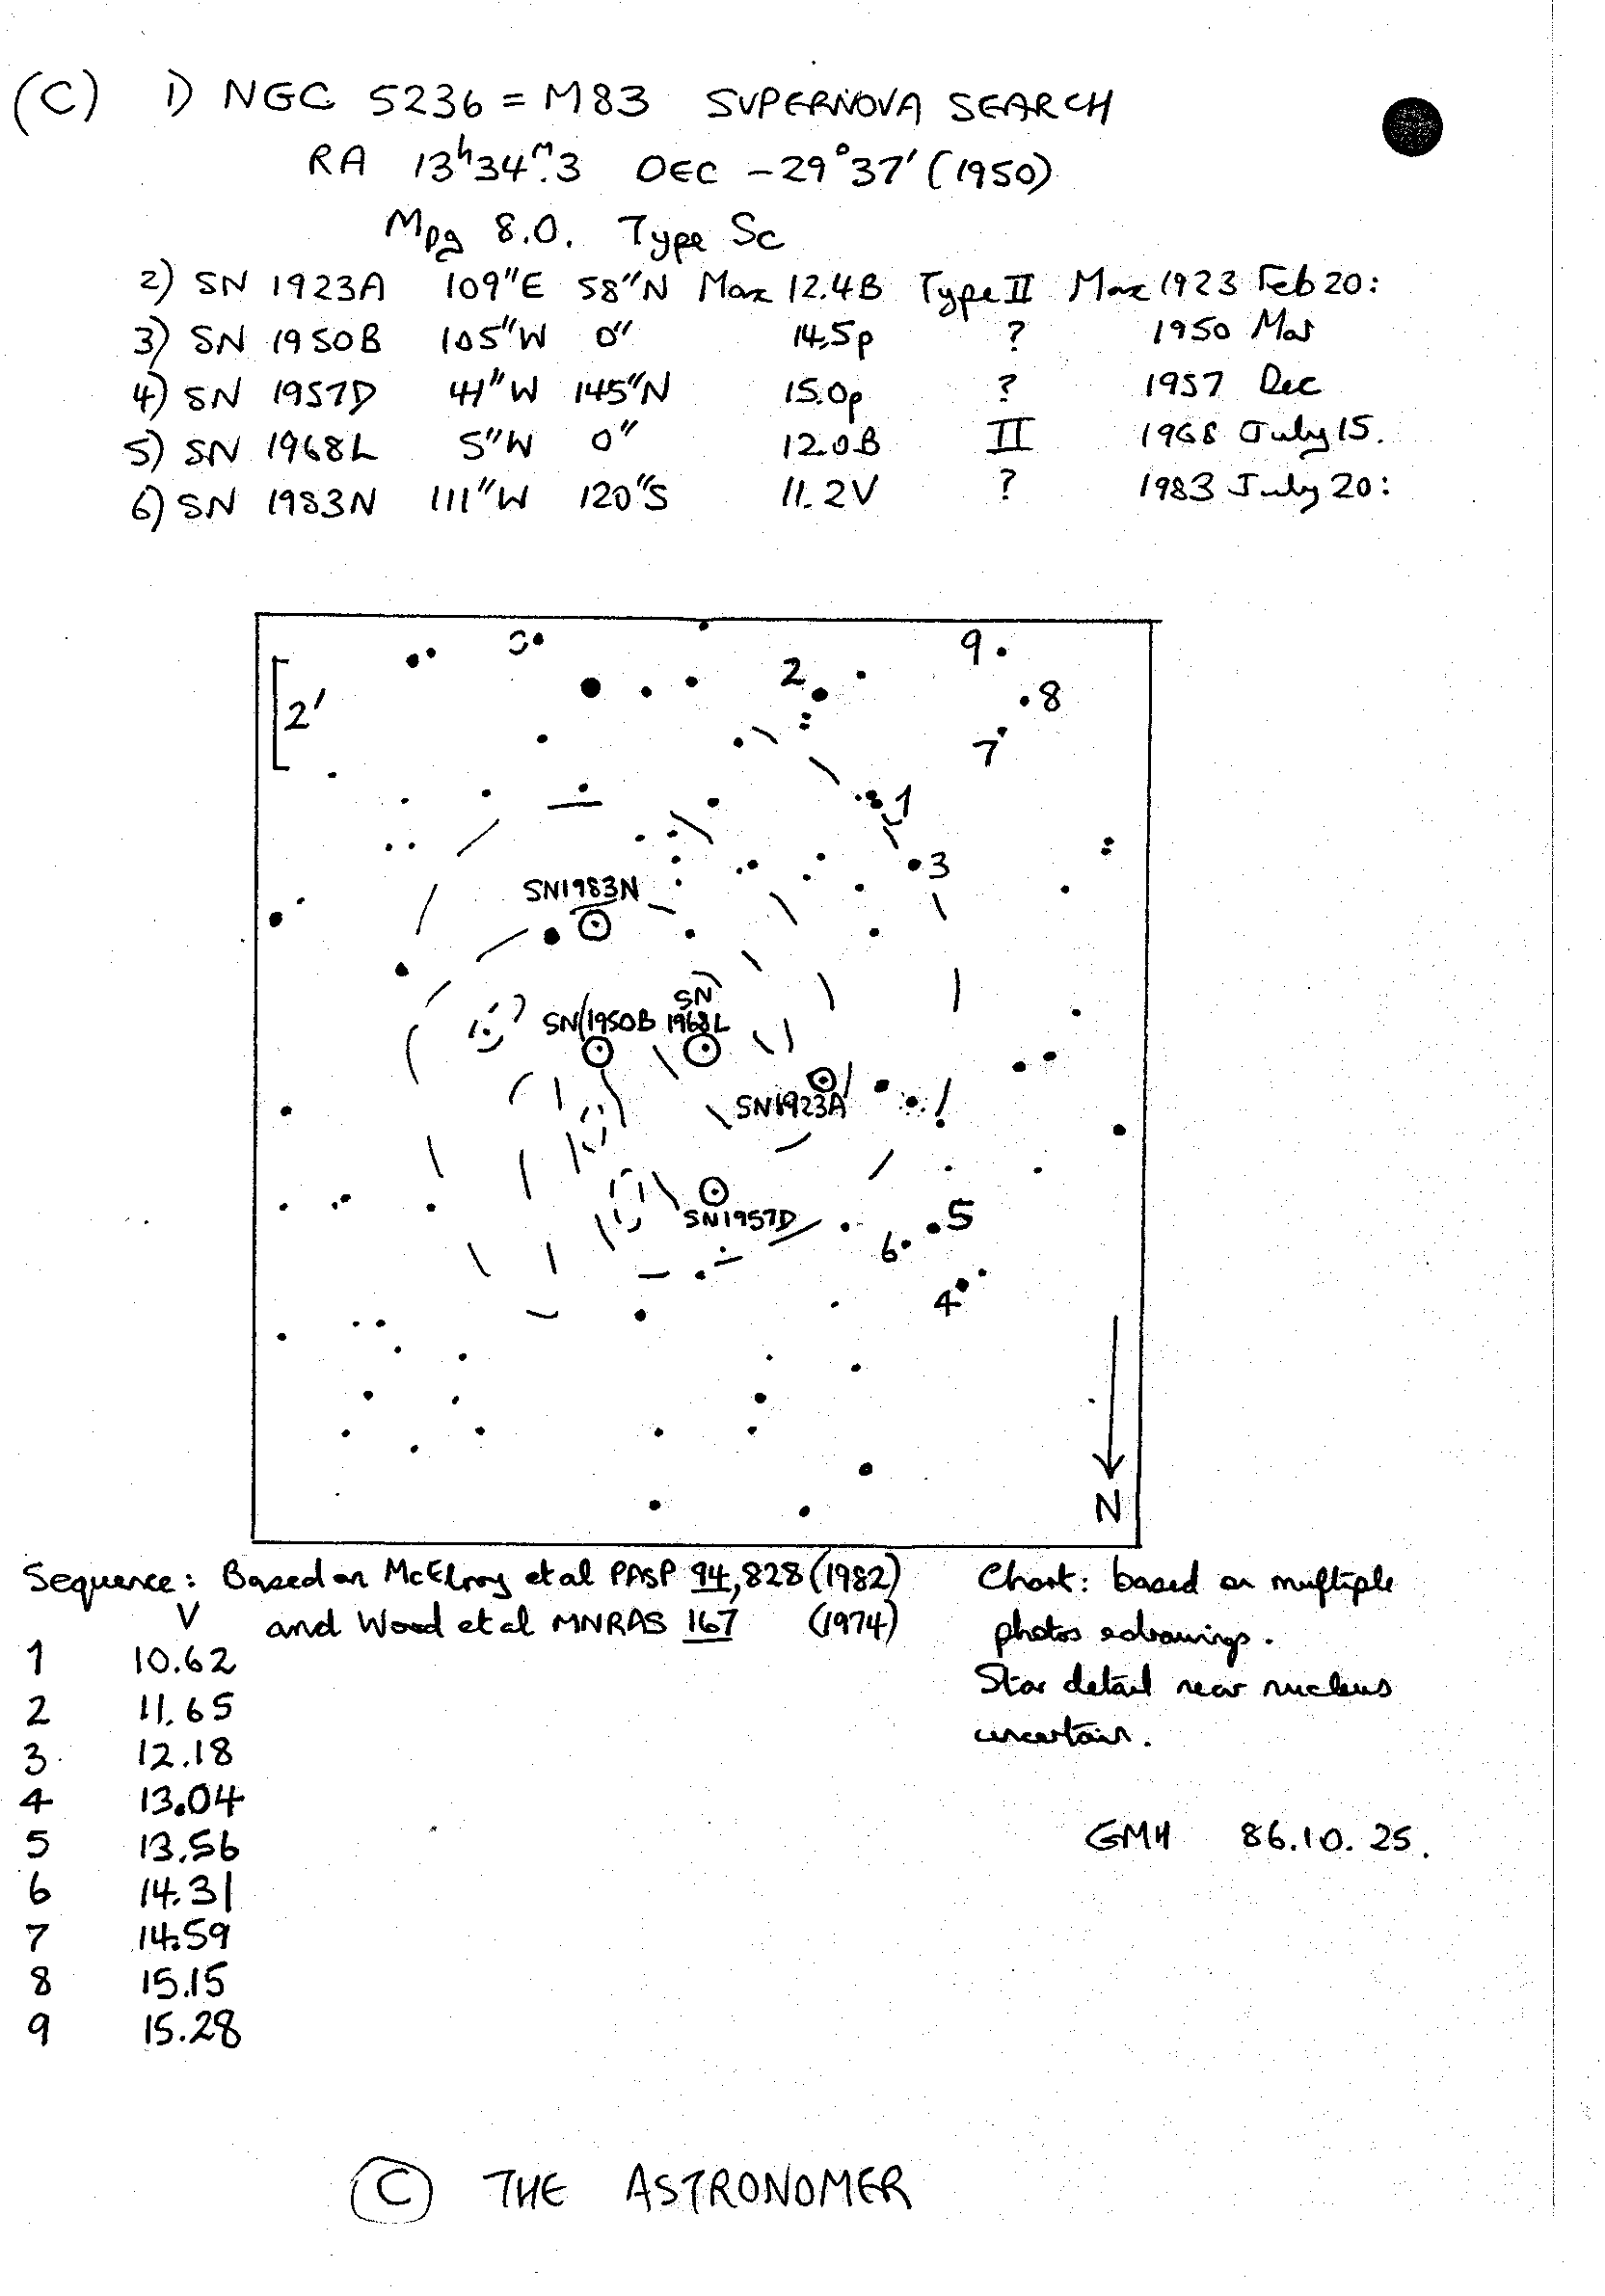 (C) 1) NGC 5236 = M83 SUPERNOVA SEARCH
RA 13ʰ34ᵐ.3 DEC -29°37' (1950)
Mpg 8.0. Type Sc
2) SN 1923A 109"E 58"N Max 12.4B Type II Max 1923 Feb 20:
3) SN 1950B 105"W 0" 14.5p ? 1950 Mar
4) SN 1957D 41"W 145"N 15.0p ? 1957 Dec
5) SN 1968L 5"W 0" 12.0B II 1968 July 15.
6) SN 1983N 111"W 120"S 11.2V ? 1983 July 20:
9
2
8
2'
7
1
3
SN1983N
SN
?
SN1950B 1968L
SN1923A
SN1957D
5
6
4
N
Sequence: Based on McElroy et al PASP 94, 828 (1982)
and Wood et al MNRAS 167 (1974)
V
1 10.62
2 11.65
3 12.18
4 13.04
5 13.56
6 14.31
7 14.59
8 15.15
9 15.28
Chart: based on multiple
photos & drawings.
Star detail near nucleus
uncertain.
GMH 86.10.25.
© THE ASTRONOMER